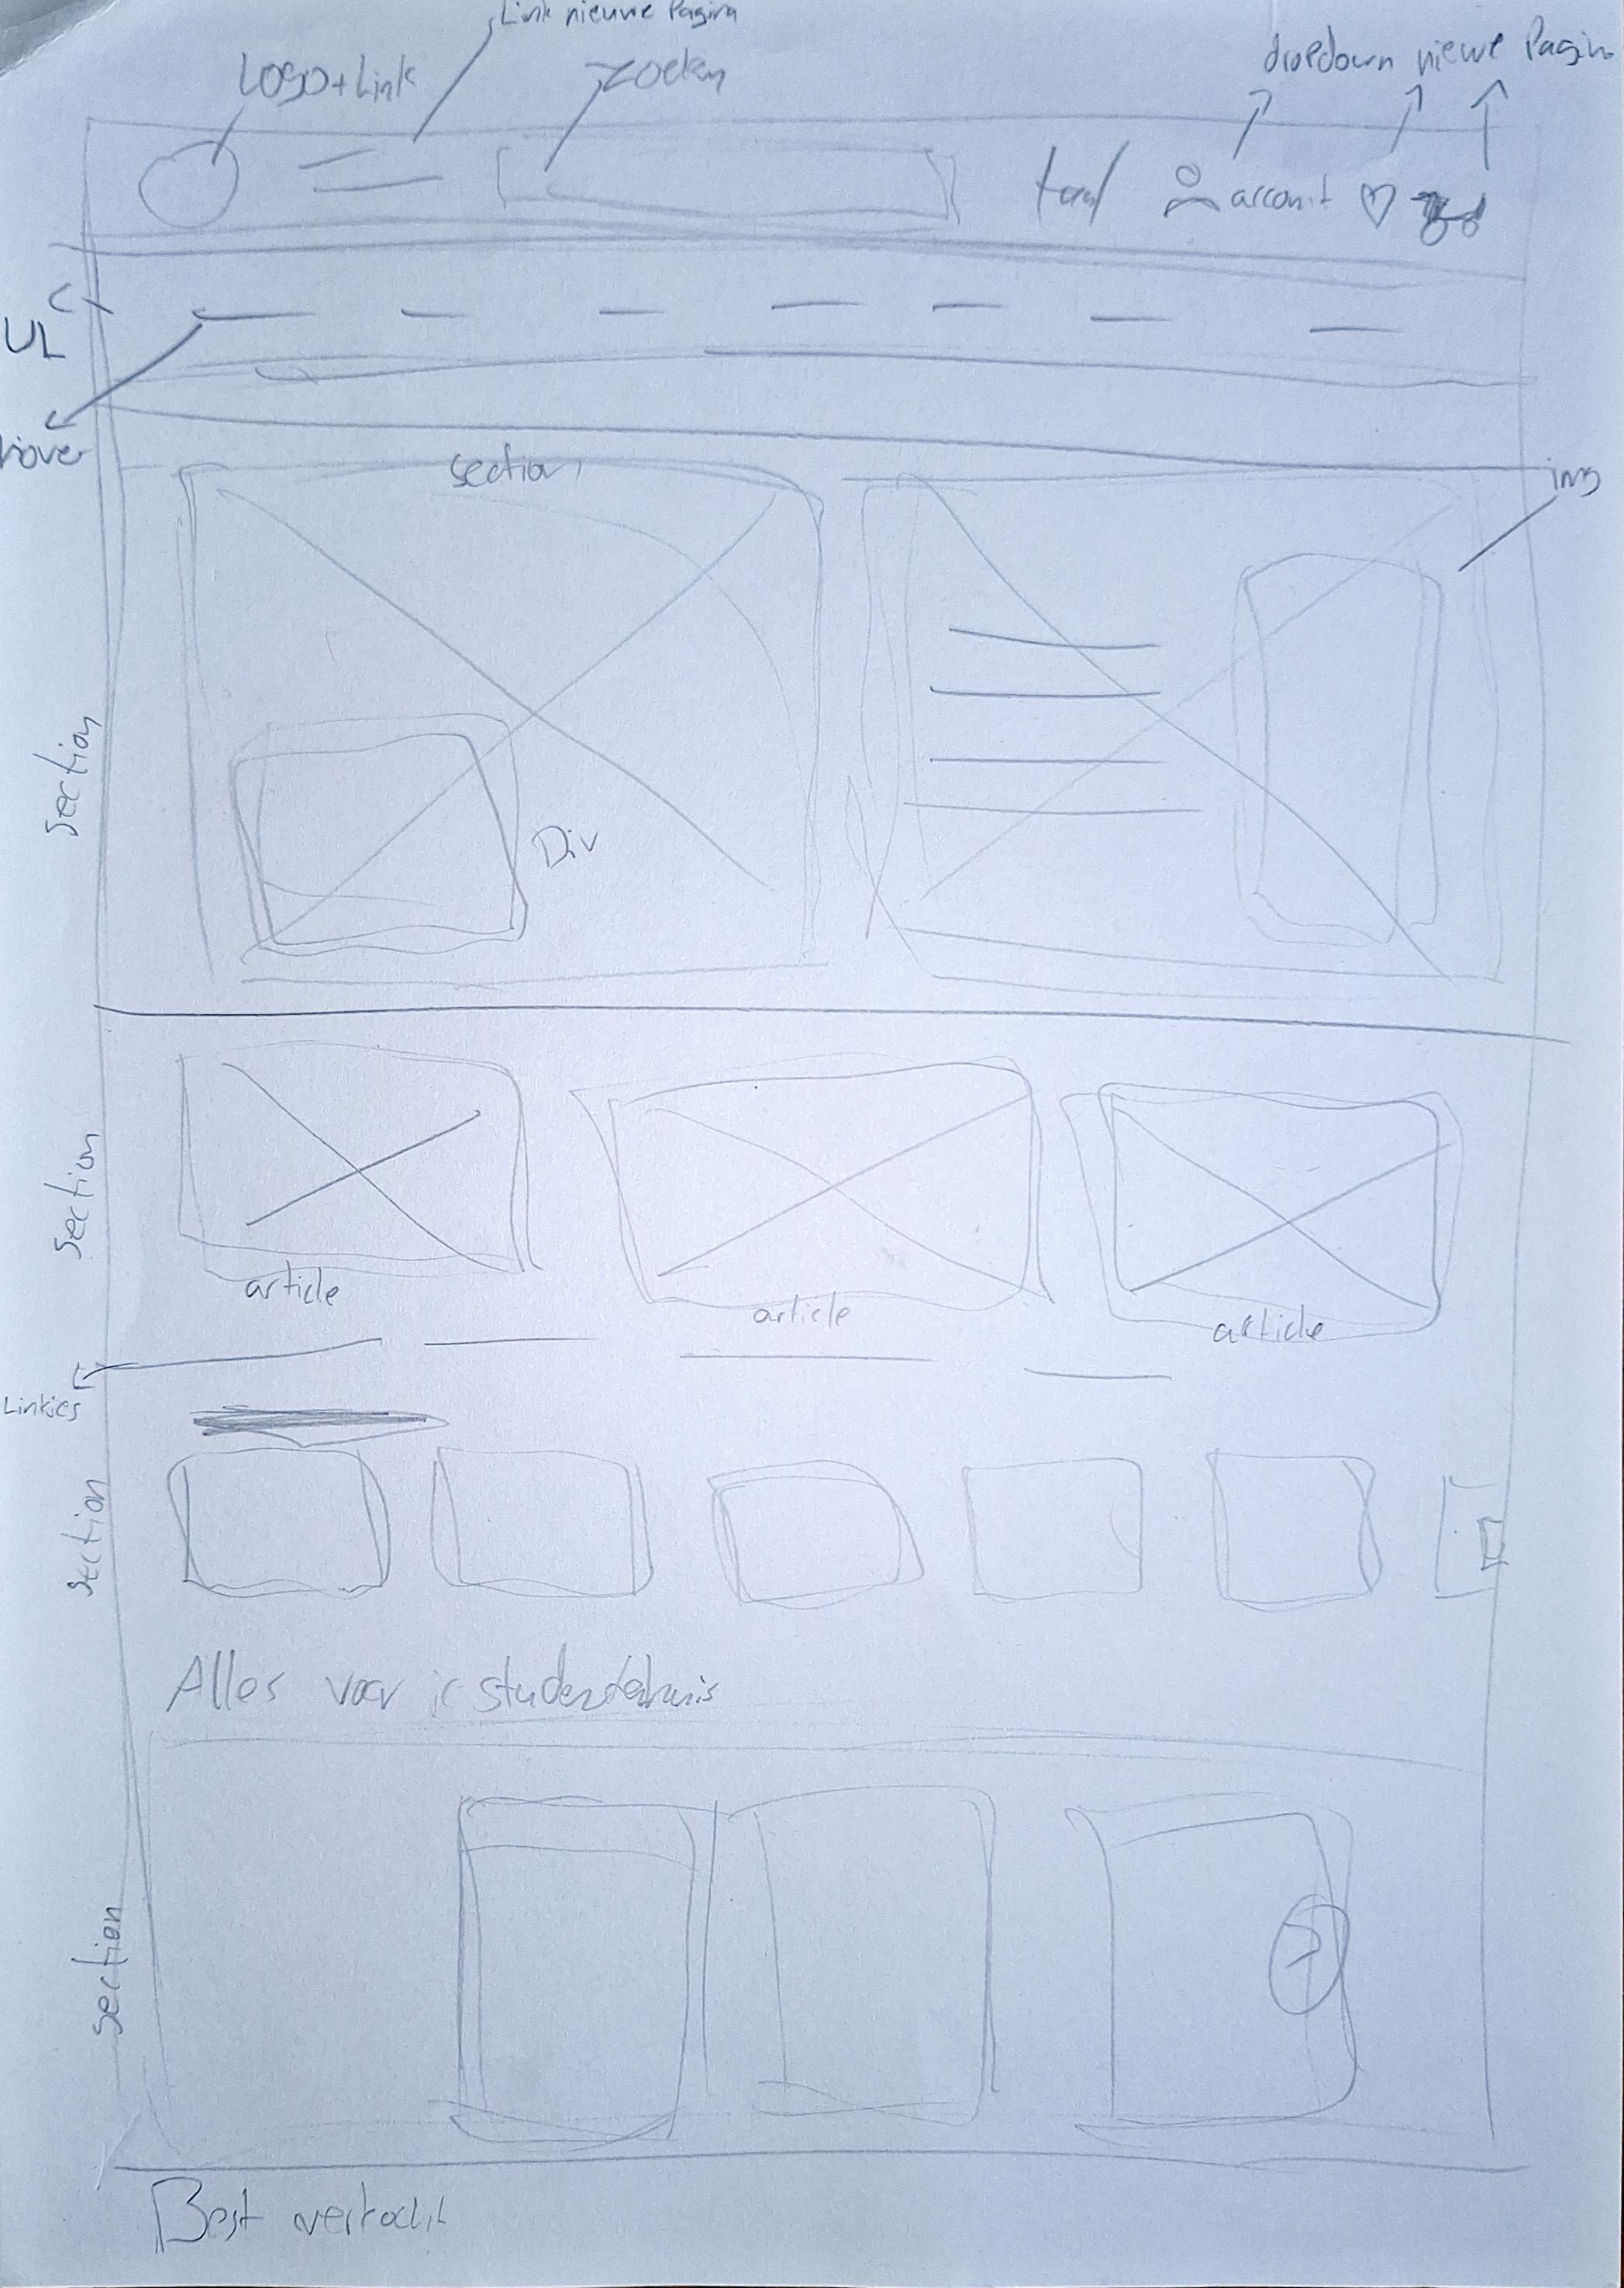 Link nieuwe Pagina
Logo+Link
Zoeken
dropdown nieuwe Pagina
taal
account
UL
hover
section
img
Section
Div
Section
article
article
article
Linkjes
Section
Alles voor je studentenhuis
Section
Best verkocht